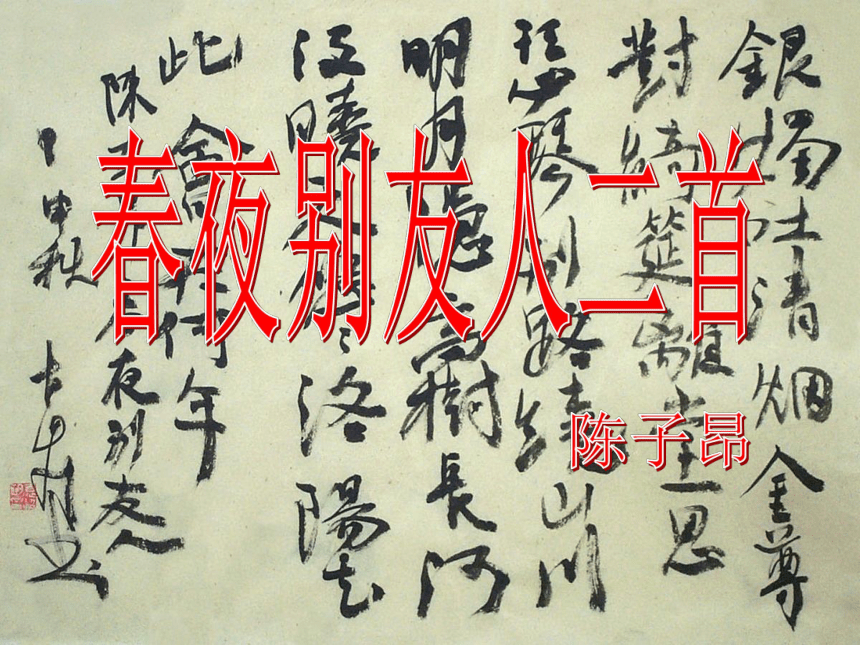 春夜别友人二首
陈子昂
銀燭吐清烟金尊
對綺筵離堂思
瑟琴別路繞山川
明月隱高樹長河
沒曉天悠悠洛陽去
此會在何年
陳子昂春夜別友人
申秋